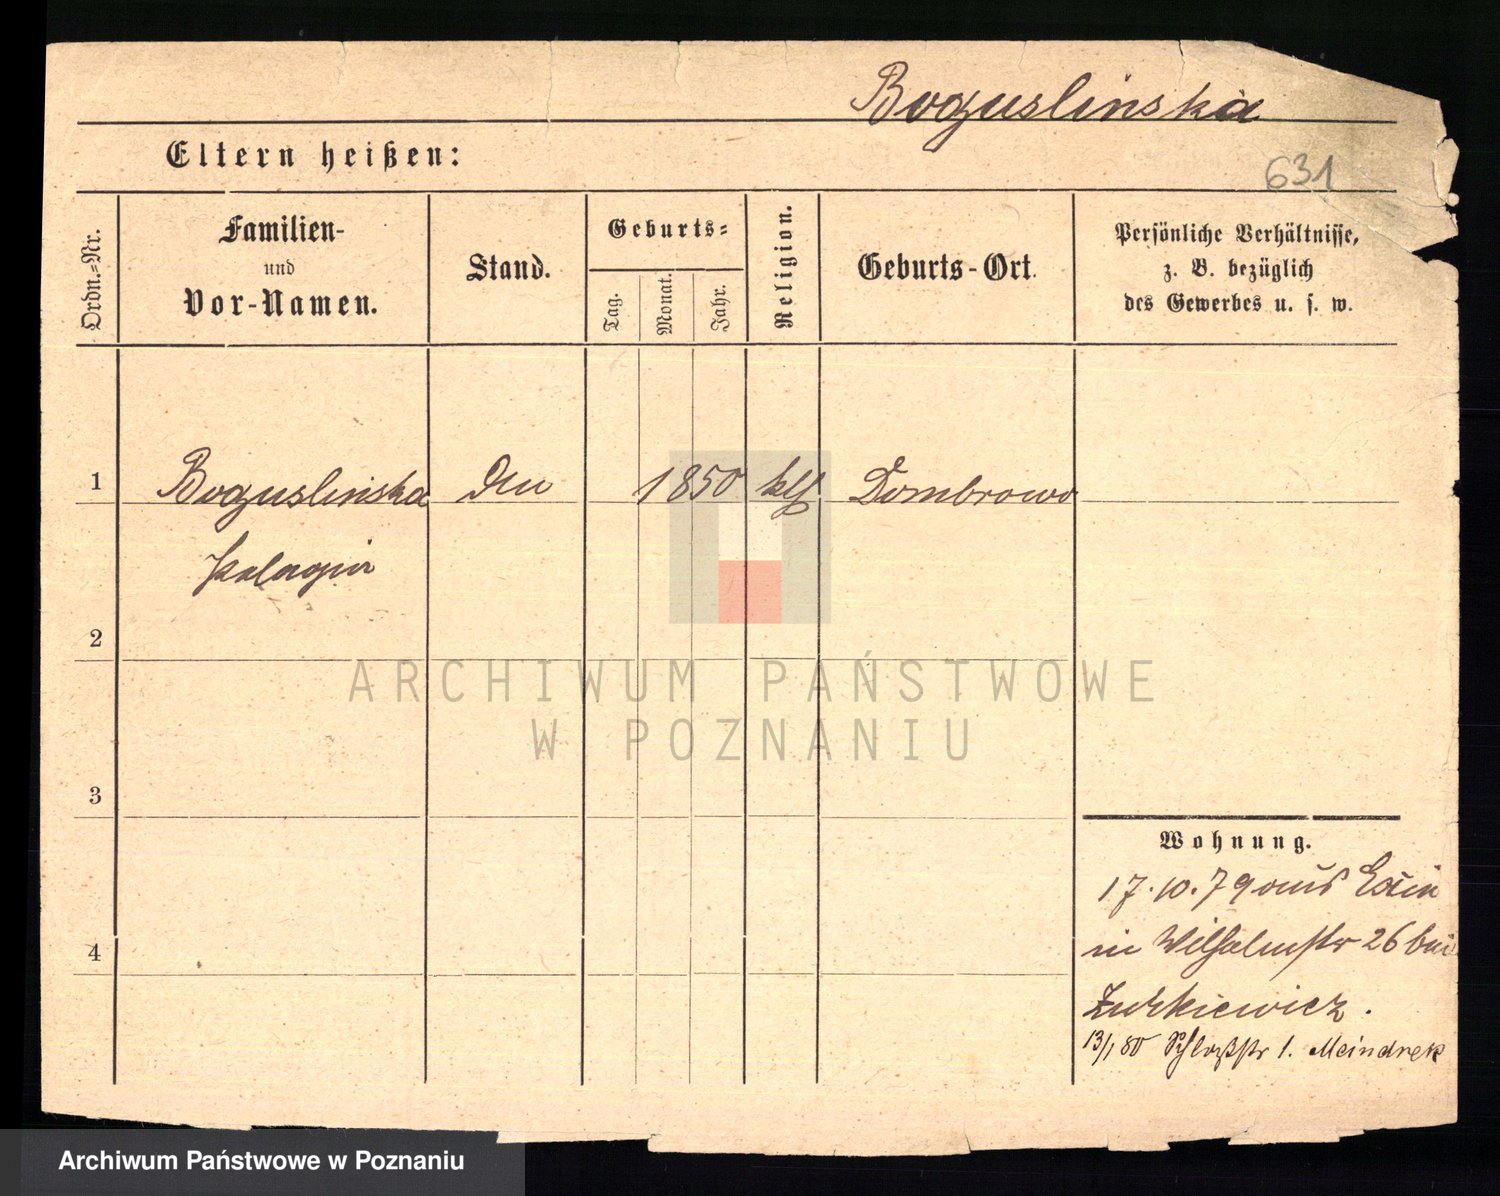 Boguslinska
Eltern heißen:
631
Ordn.=Nr.
Familien-
und
Vor-Namen.
Stand.
Geburts=
Tag.
Monat.
Jahr.
Religion.
Geburts-Ort.
Persönliche Verhältnisse,
z. B. bezüglich
des Gewerbes u. s. w.
1
Boguslinska
1850
kth
Dombrowo
Pelagia
2
3
4
Wohnung.
17.10.79 aus Exin
in Wilhelmstr 26 bei
Zurkiewicz.
13/1 80 Schloßstr 1. Meindrek
ARCHIWUM PAŃSTWOWE
W POZNANIU
Archiwum Państwowe w Poznaniu